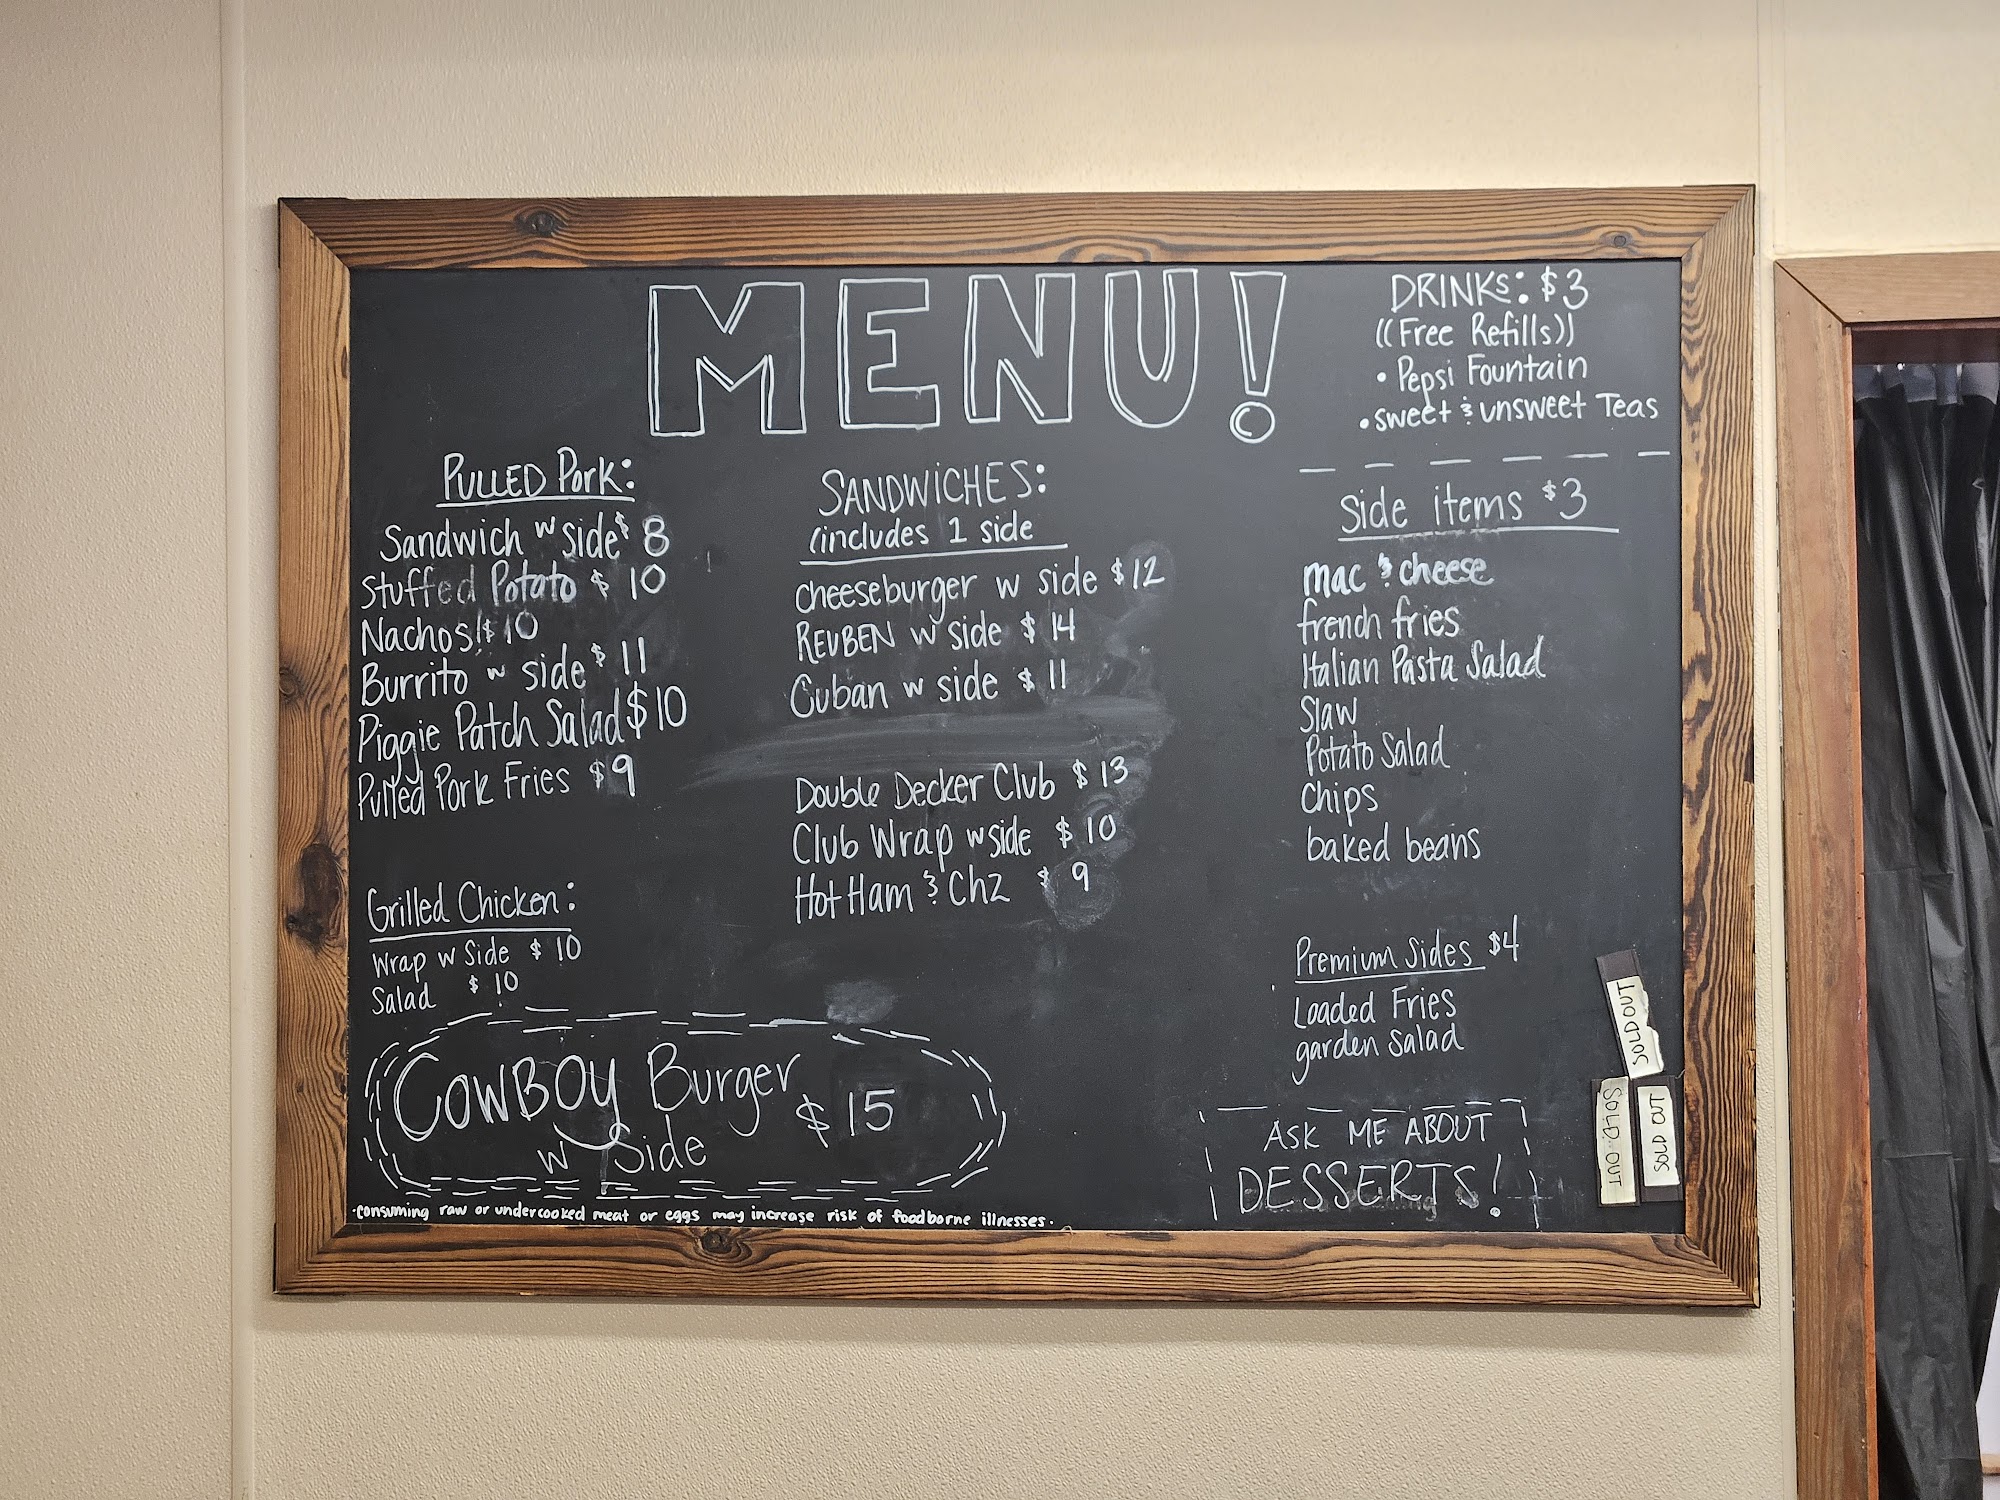 MENU!
DRINKS: $3
((Free Refills))
• Pepsi Fountain
• sweet & unsweet Teas
PULLED Pork:
Sandwich w side $ 8
Stuffed Potato $ 10
Nachos! $ 10
Burrito w side $ 11
Piggie Patch Salad $10
Pulled Pork Fries $9
Grilled Chicken:
Wrap w Side $ 10
Salad $ 10
COWBOY Burger
w Side $ 15
SANDWICHES:
(includes 1 side
cheeseburger w side $12
REUBEN w side $ 14
Cuban w side $ 11
Double Decker Club $ 13
Club Wrap w side $ 10
Hot Ham & Chz $ 9
Side items $3
mac & cheese
french fries
Italian Pasta Salad
Slaw
Potato Salad
Chips
baked beans
Premium Sides $4
Loaded Fries
garden salad
SOLD OUT
SOLD OUT
SOLD OUT
ASK ME ABOUT
DESSERTS!
•consuming raw or undercooked meat or eggs may increase risk of foodborne illnesses.